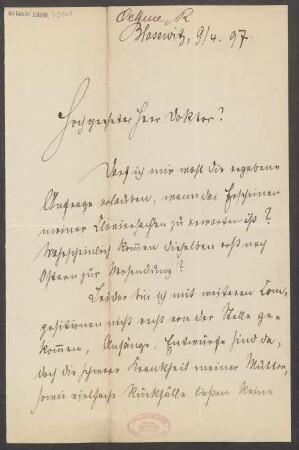 Oehme, R
Blasewitz, 9/4. 97.
Hochgeehrter Herr Doktor!
Darf ich mir wohl die ergebene
Anfrage erlauben, wann das Erscheinen
meiner Claviersachen zu erwarten ist?
Wahrscheinlich kommen dieselben erst nach
Ostern zur Versendung?
Leider bin ich mit weiteren Com-
positionen nicht recht von der Stelle ge-
kommen, Anfänge, Entwürfe sind da,
doch die schwere Krankheit meiner Mutter,
sowie vielfache Rückfälle ließen keine